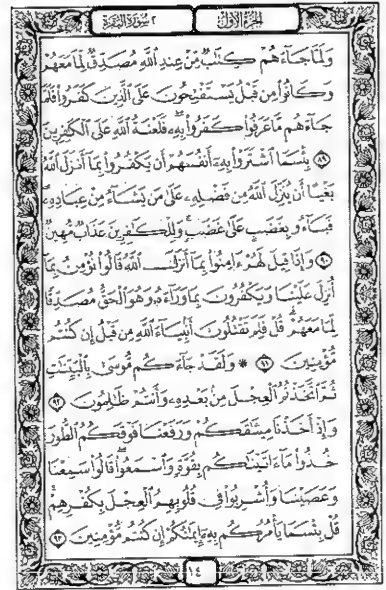 الجزء الأول
٢ سورة البقرة
ولما جاءهم كتب من عند الله مصدق لما معهم
وكانوا من قبل يستفتحون على الذين كفروا فلما
جاءهم ما عرفوا كفروا به فلعنة الله على الكفرين
٨٩ بئسما اشتروا به أنفسهم أن يكفروا بما أنزل الله
بغيا أن ينزل الله من فضله على من يشاء من عباده
فباءو بغضب على غضب وللكفرين عذاب مهين
٩٠ وإذا قيل لهم ءامنوا بما أنزل الله قالوا نؤمن بما
أنزل علينا ويكفرون بما وراءه وهو الحق مصدقا
لما معهم قل فلم تقتلون أنبياء الله من قبل إن كنتم
مؤمنين ٩١ * ولقد جاءكم موسى بالبينت
ثم اتخذتم العجل من بعده وأنتم ظلمون ٩٢
وإذ أخذنا ميثقكم ورفعنا فوقكم الطور
خذوا ما ءاتينكم بقوة واسمعوا قالوا سمعنا
وعصينا وأشربوا في قلوبهم العجل بكفرهم
قل بئسما يأمركم به إيمنكم إن كنتم مؤمنين ٩٣
١٤